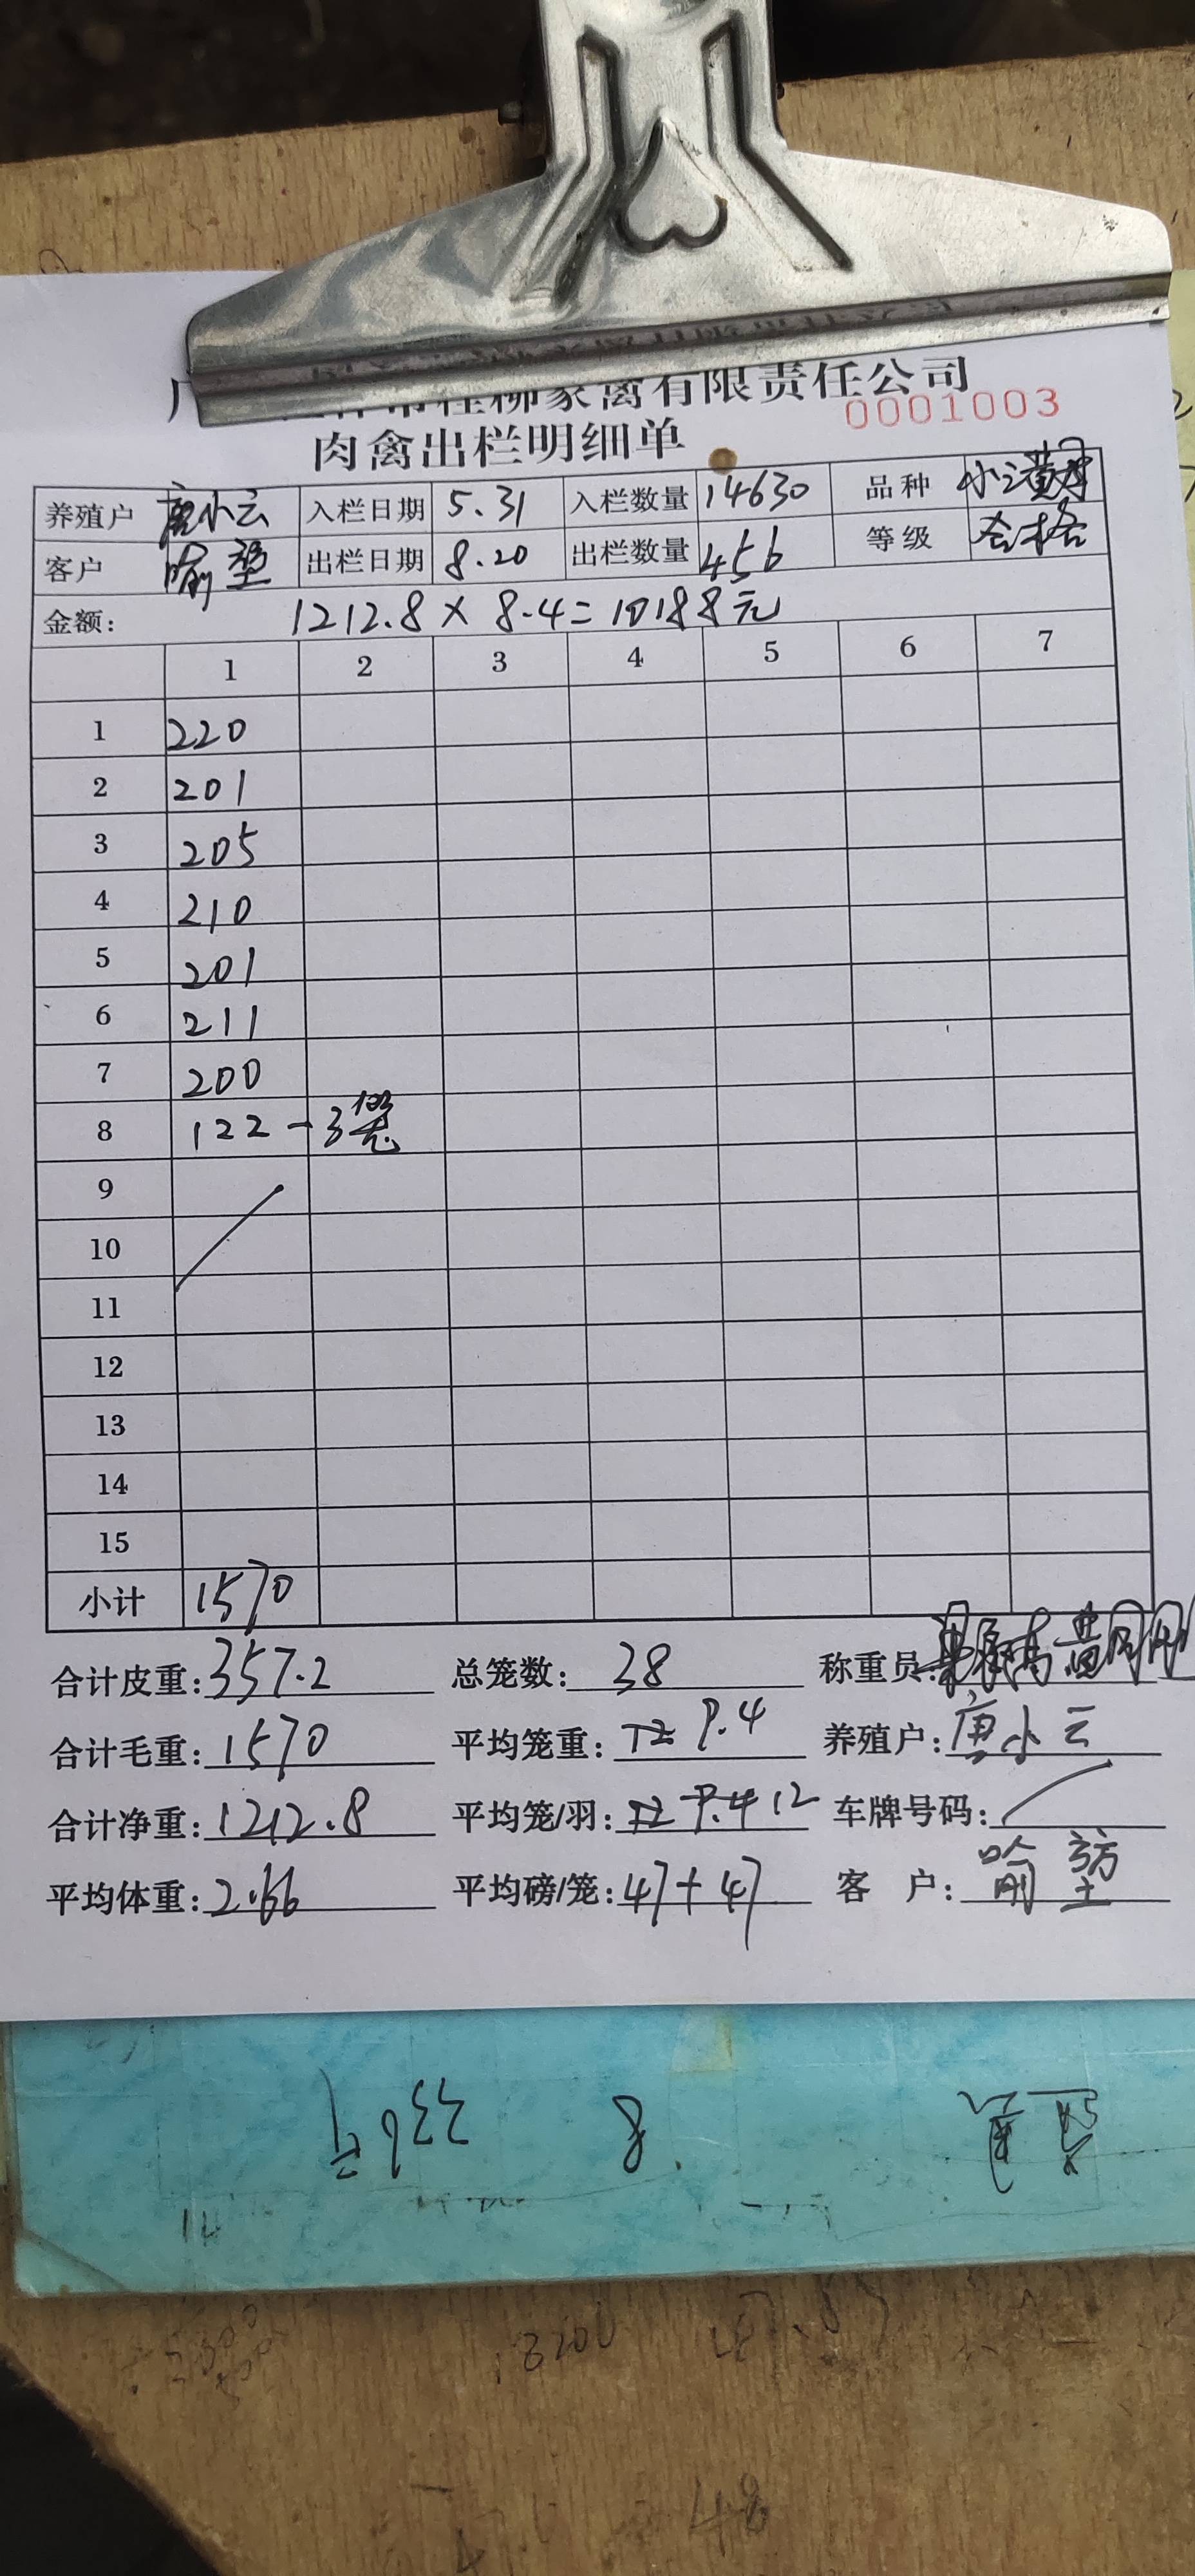 桂柳家禽有限责任公司
0001003
肉禽出栏明细单
养殖户 唐小云 入栏日期 5.31 入栏数量 14630 品种 小三黄母
客户 喻堃 出栏日期 8.20 出栏数量 456 等级 合格
金额: 1212.8 × 8.4 = 10188元
1 2 3 4 5 6 7
1 220
2 201
3 205
4 210
5 201
6 211
7 200
8 122 - 3笼
9
10
11
12
13
14
15
小计 1570
合计皮重: 357.2 总笼数: 38 称重员:
合计毛重: 1570 平均笼重: 9.4 养殖户: 唐小云
合计净重: 1212.8 平均笼/羽: 12 车牌号码:
平均体重: 2.66 平均磅/笼: 47+47 客 户: 喻堃